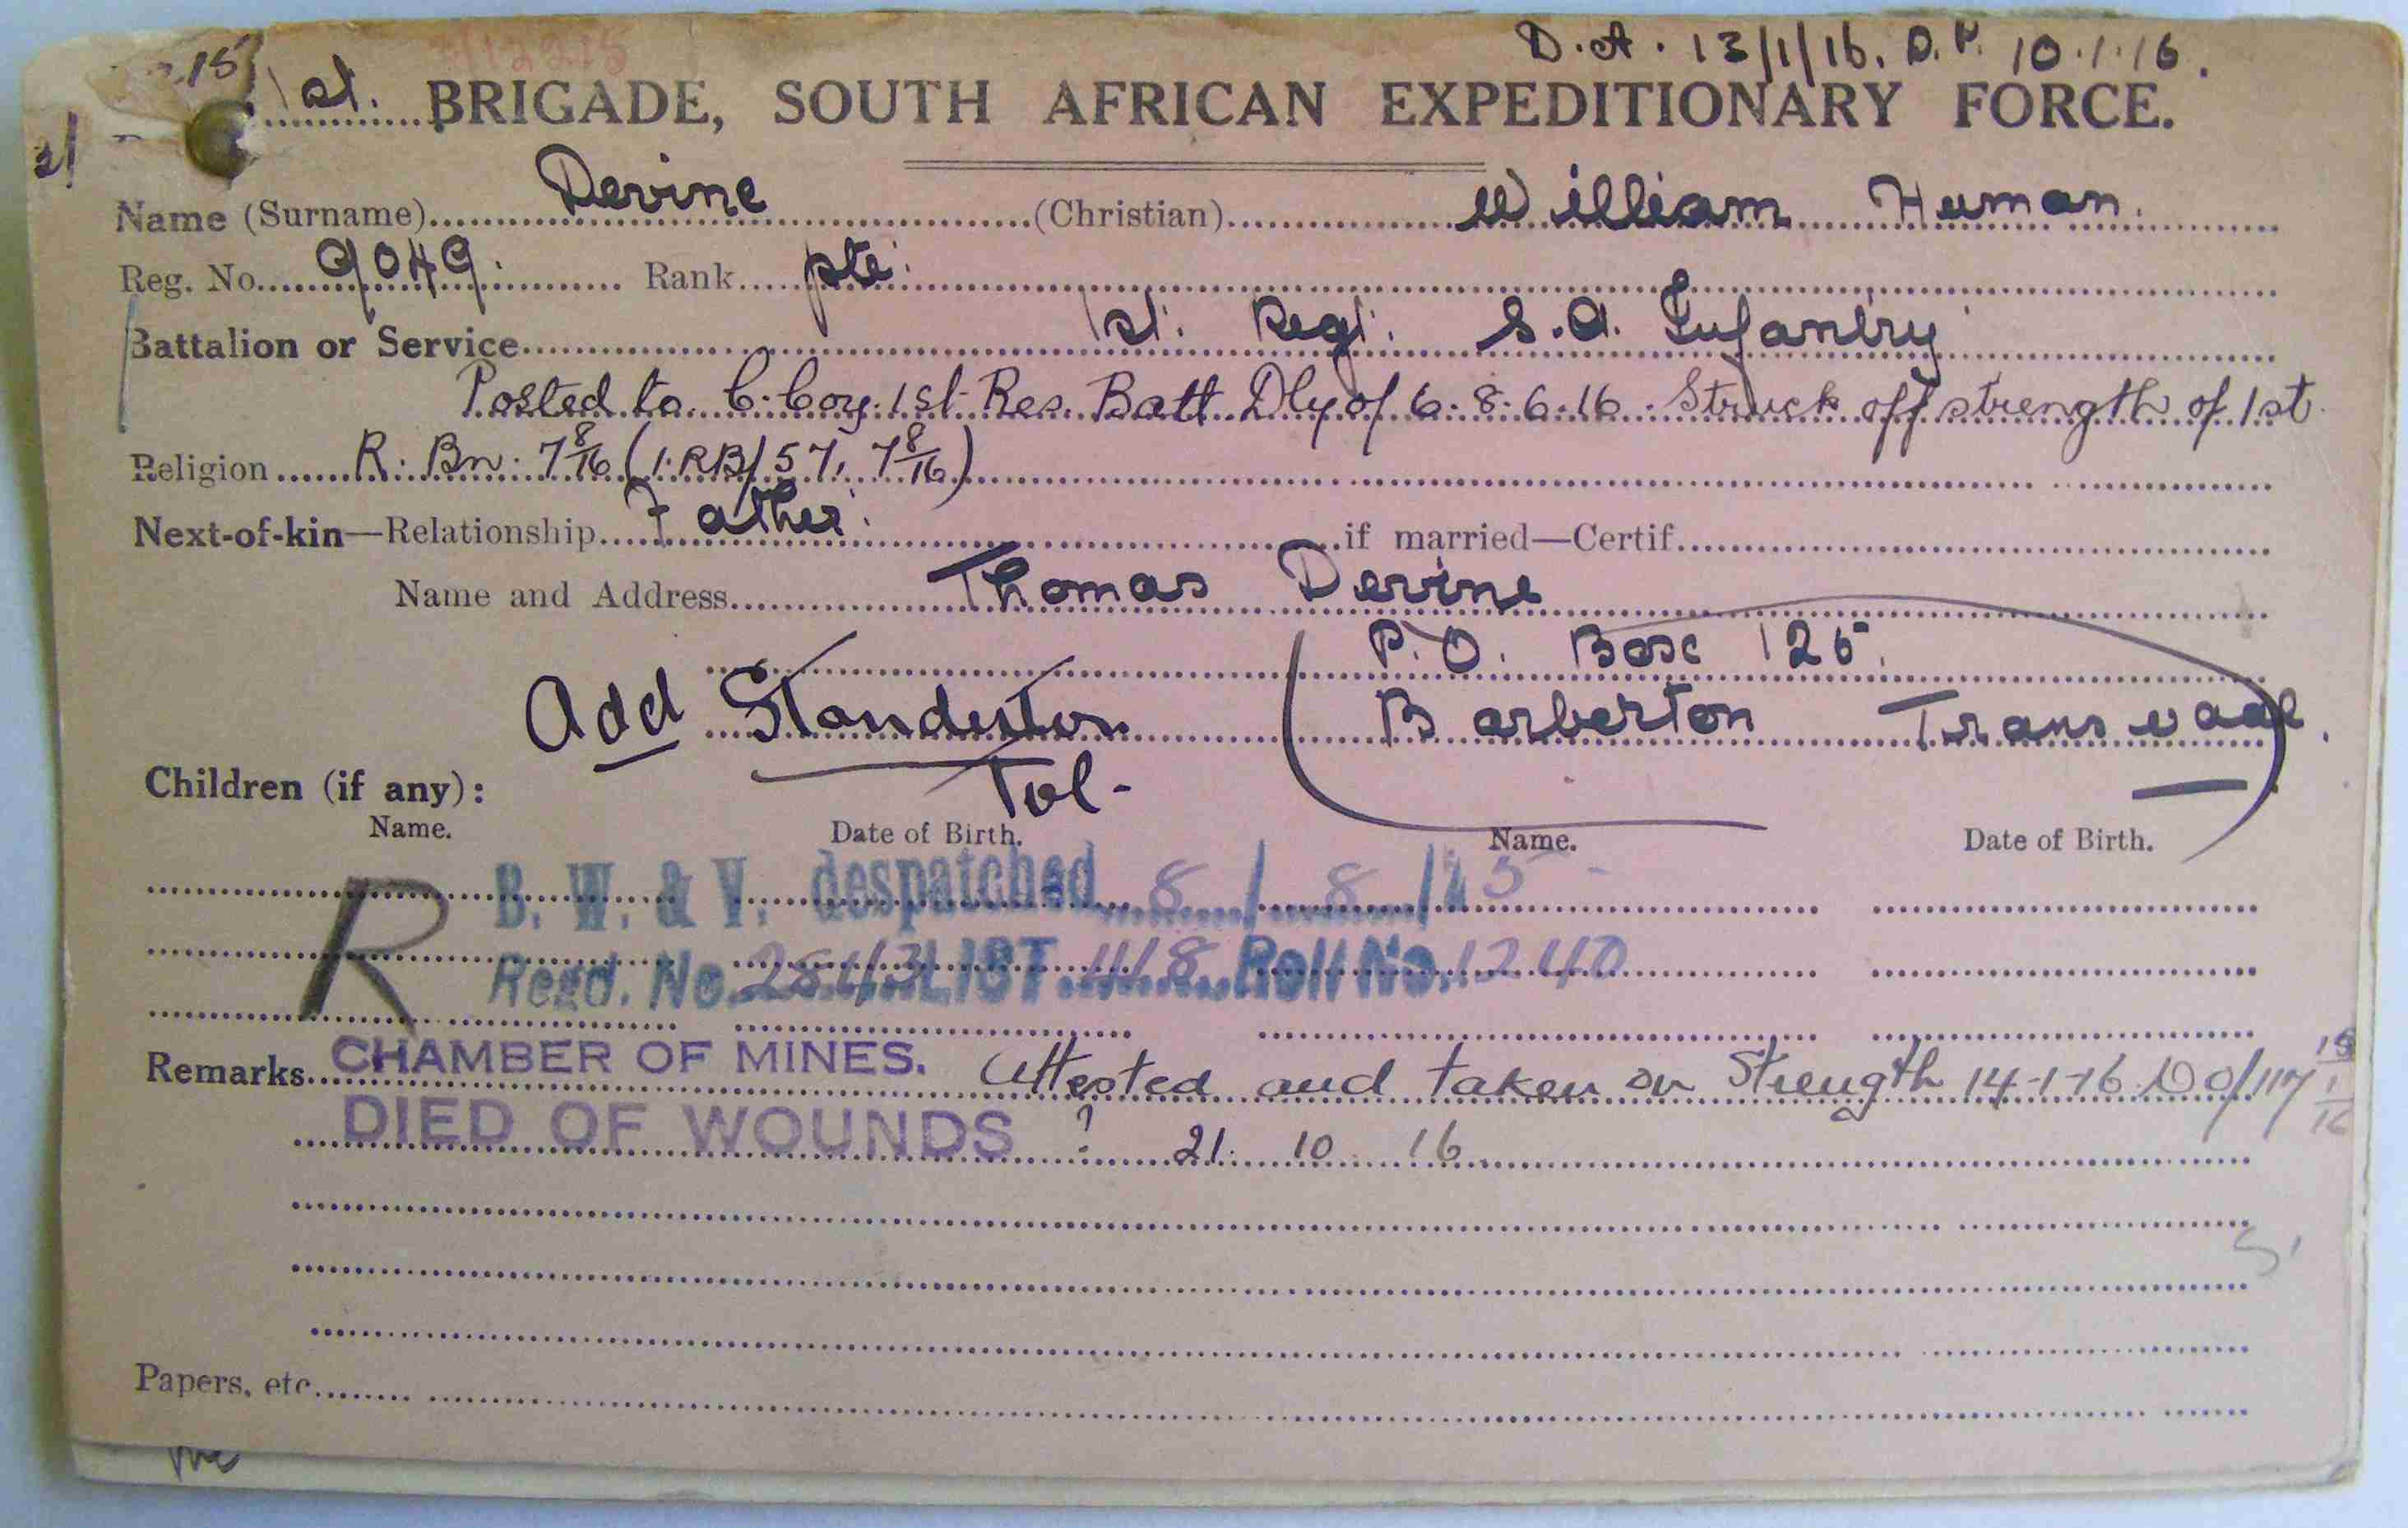 D.A. 13/1/16. D.P. 10.1.16.
1st. BRIGADE, SOUTH AFRICAN EXPEDITIONARY FORCE.
Name (Surname) Devine (Christian) William Human.
Reg. No. 9049. Rank pte.
Battalion or Service 1st. Regt. S.A. Infantry
Posted to C. Coy. 1st Res. Batt Dly of 6.8.6.16. Struck off strength of 1st
Religion R. Bn. 7 8/16 (1.RB/57, 7 8/16)
Next-of-kin—Relationship Father. if married—Certif.
Name and Address Thomas Devine
P.O. Box 125.
Add Standerton Barberton Transvaal.
Tvl-
Children (if any):
Name. Date of Birth. Name. Date of Birth.
R B. W. & V. despatched 8/8/25
Regd. No. 2843 LIST 418 Roll No. 1240
Remarks CHAMBER OF MINES. Attested and taken on Strength 14-1-16. DO/117 15/1/16
DIED OF WOUNDS ? 21. 10 16
Papers, etc.